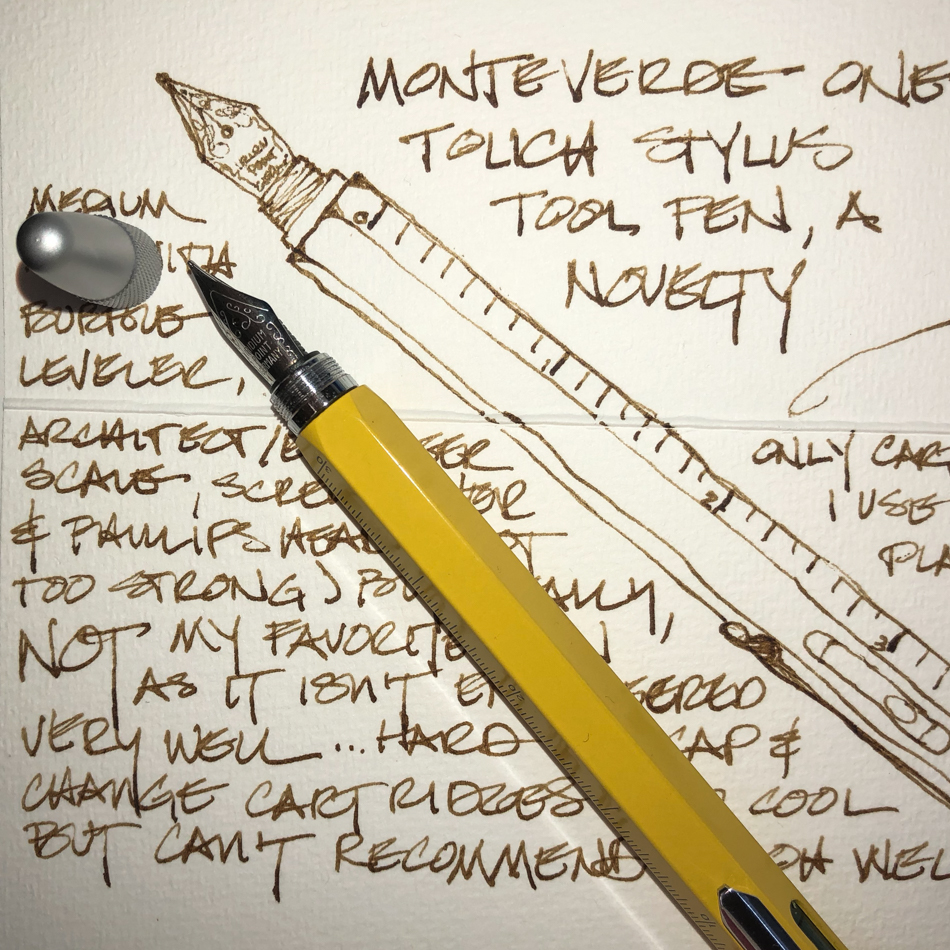 MONTEVERDE ONE
TOUCH STYLUS
TOOL PEN, A
NOVELTY
MEDIUM
BUBBLE
LEVELER,
ARCHITECT/
SCALE,
& PHILLIPS HEAD
TOO STRONG)
NOT MY FAVORITE
AS IT ISN'T
VERY WELL ... HARD CAP &
CHANGE CARTRIDGES COOL
BUT CAN'T RECOMMEND OH WEL
ONLY CAR
I USE
PLA
2
3